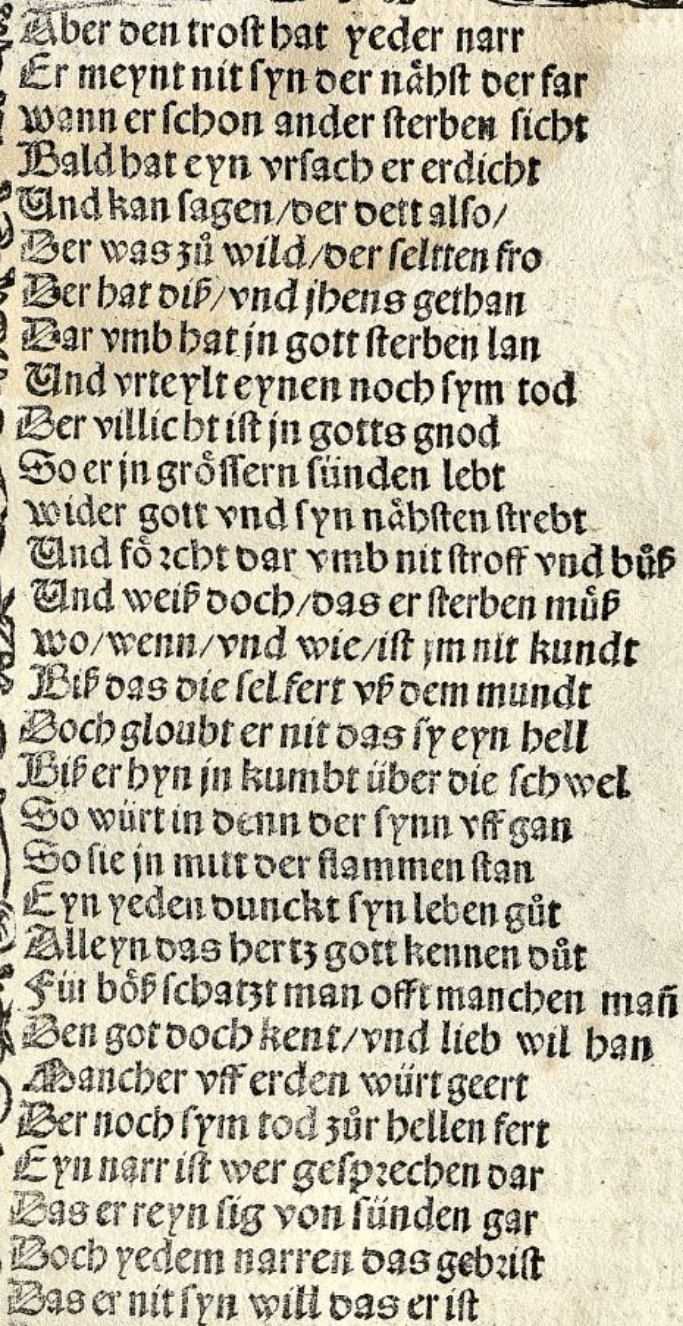 Aber den troſt hat yeder narr
Er meynt nit ſyn der nåhſt der far
wann er ſchon ander ſterben ſicht
Bald hat eyn vrſach er erdicht
Und kan ſagen/der dett alſo/
Der was zů wild/der ſeltten fro
Der hat diß/vnd jhens gethan
Dar vmb hat jn gott ſterben lan
Und vrteylt eynen noch ſym tod
Der villicht iſt jn gotts gnod
So er jn gröſſern ſünden lebt
wider gott vnd ſyn nåhſten ſtrebt
Und förcht dar vmb nit ſtroff vnd bůß
Und weiß doch/das er ſterben můß
wo/wenn/vnd wie/iſt jm nit kundt
Biß das die ſel fert vß dem mundt
Doch gloubt er nit das ſy eyn hell
Biß er hyn jn kumbt über die ſchwel
So würt in denn der ſynn vff gan
So ſie jn mitt der flammen ſtan
Eyn yeden dunckt ſyn leben gůt
Alleyn das hertz gott kennen důt
Für böß ſchatzt man offt manchen mañ
Den got doch kent/vnd lieb wil han
Mancher vff erden würt geert
Der noch ſym tod zůr hellen fert
Eyn narr iſt wer geſprechen dar
Das er reyn ſig von ſünden gar
Doch yedem narren das gebriſt
Das er nit ſyn will das er iſt